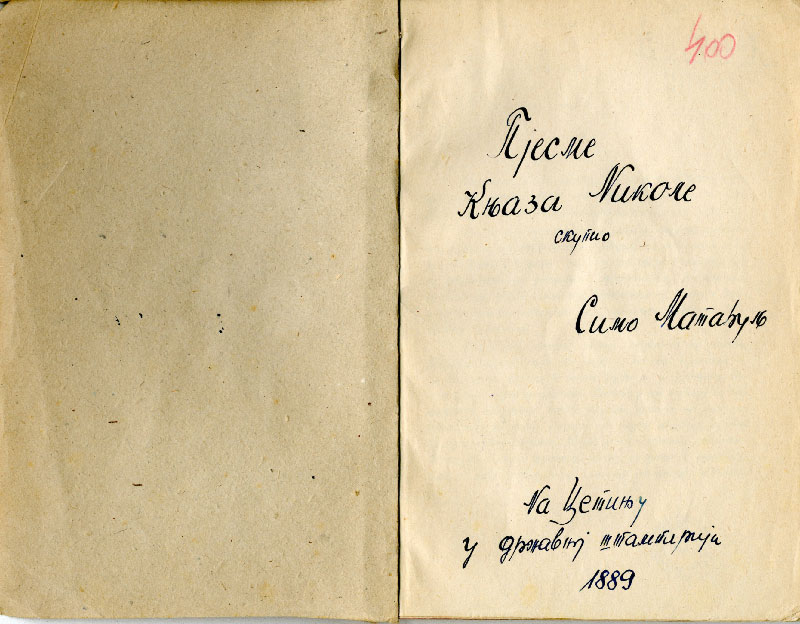 400
Пјесме
Књаза Николе
скупио
Симо Матавуљ
На Цетињу
у државној штампарији
1889